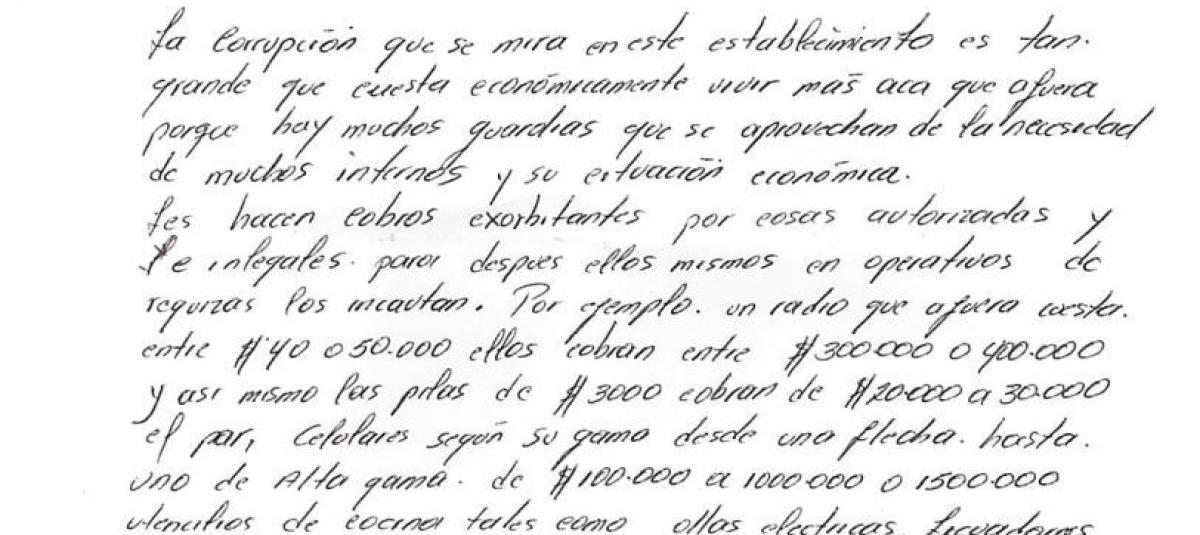 La Corrupción que se mira en este establecimiento es tan.
grande que cuesta económicamente vivir más aca que afuera
porque hay muchos guardias que se aprovechan de la necesidad
de muchos internos y su situación económica.
Les hacen cobros exorbitantes por cosas autorizadas y
e inlegales. para despues ellos mismos en operativos de
requizas los incautan. Por ejemplo. un radio que afuera cuesta.
entre $ 40 o 50.000 ellos cobran entre $ 300.000 o 400.000
y asi mismo las pilas de $ 3000 cobran de $ 20.000 a 30.000
el par, Celulares según su gama desde una flecha. hasta.
uno de Alta gama. de $ 100.000 a 1000.000 o 1500000
utencilios de cocina tales como ollas electricas, licuadoras